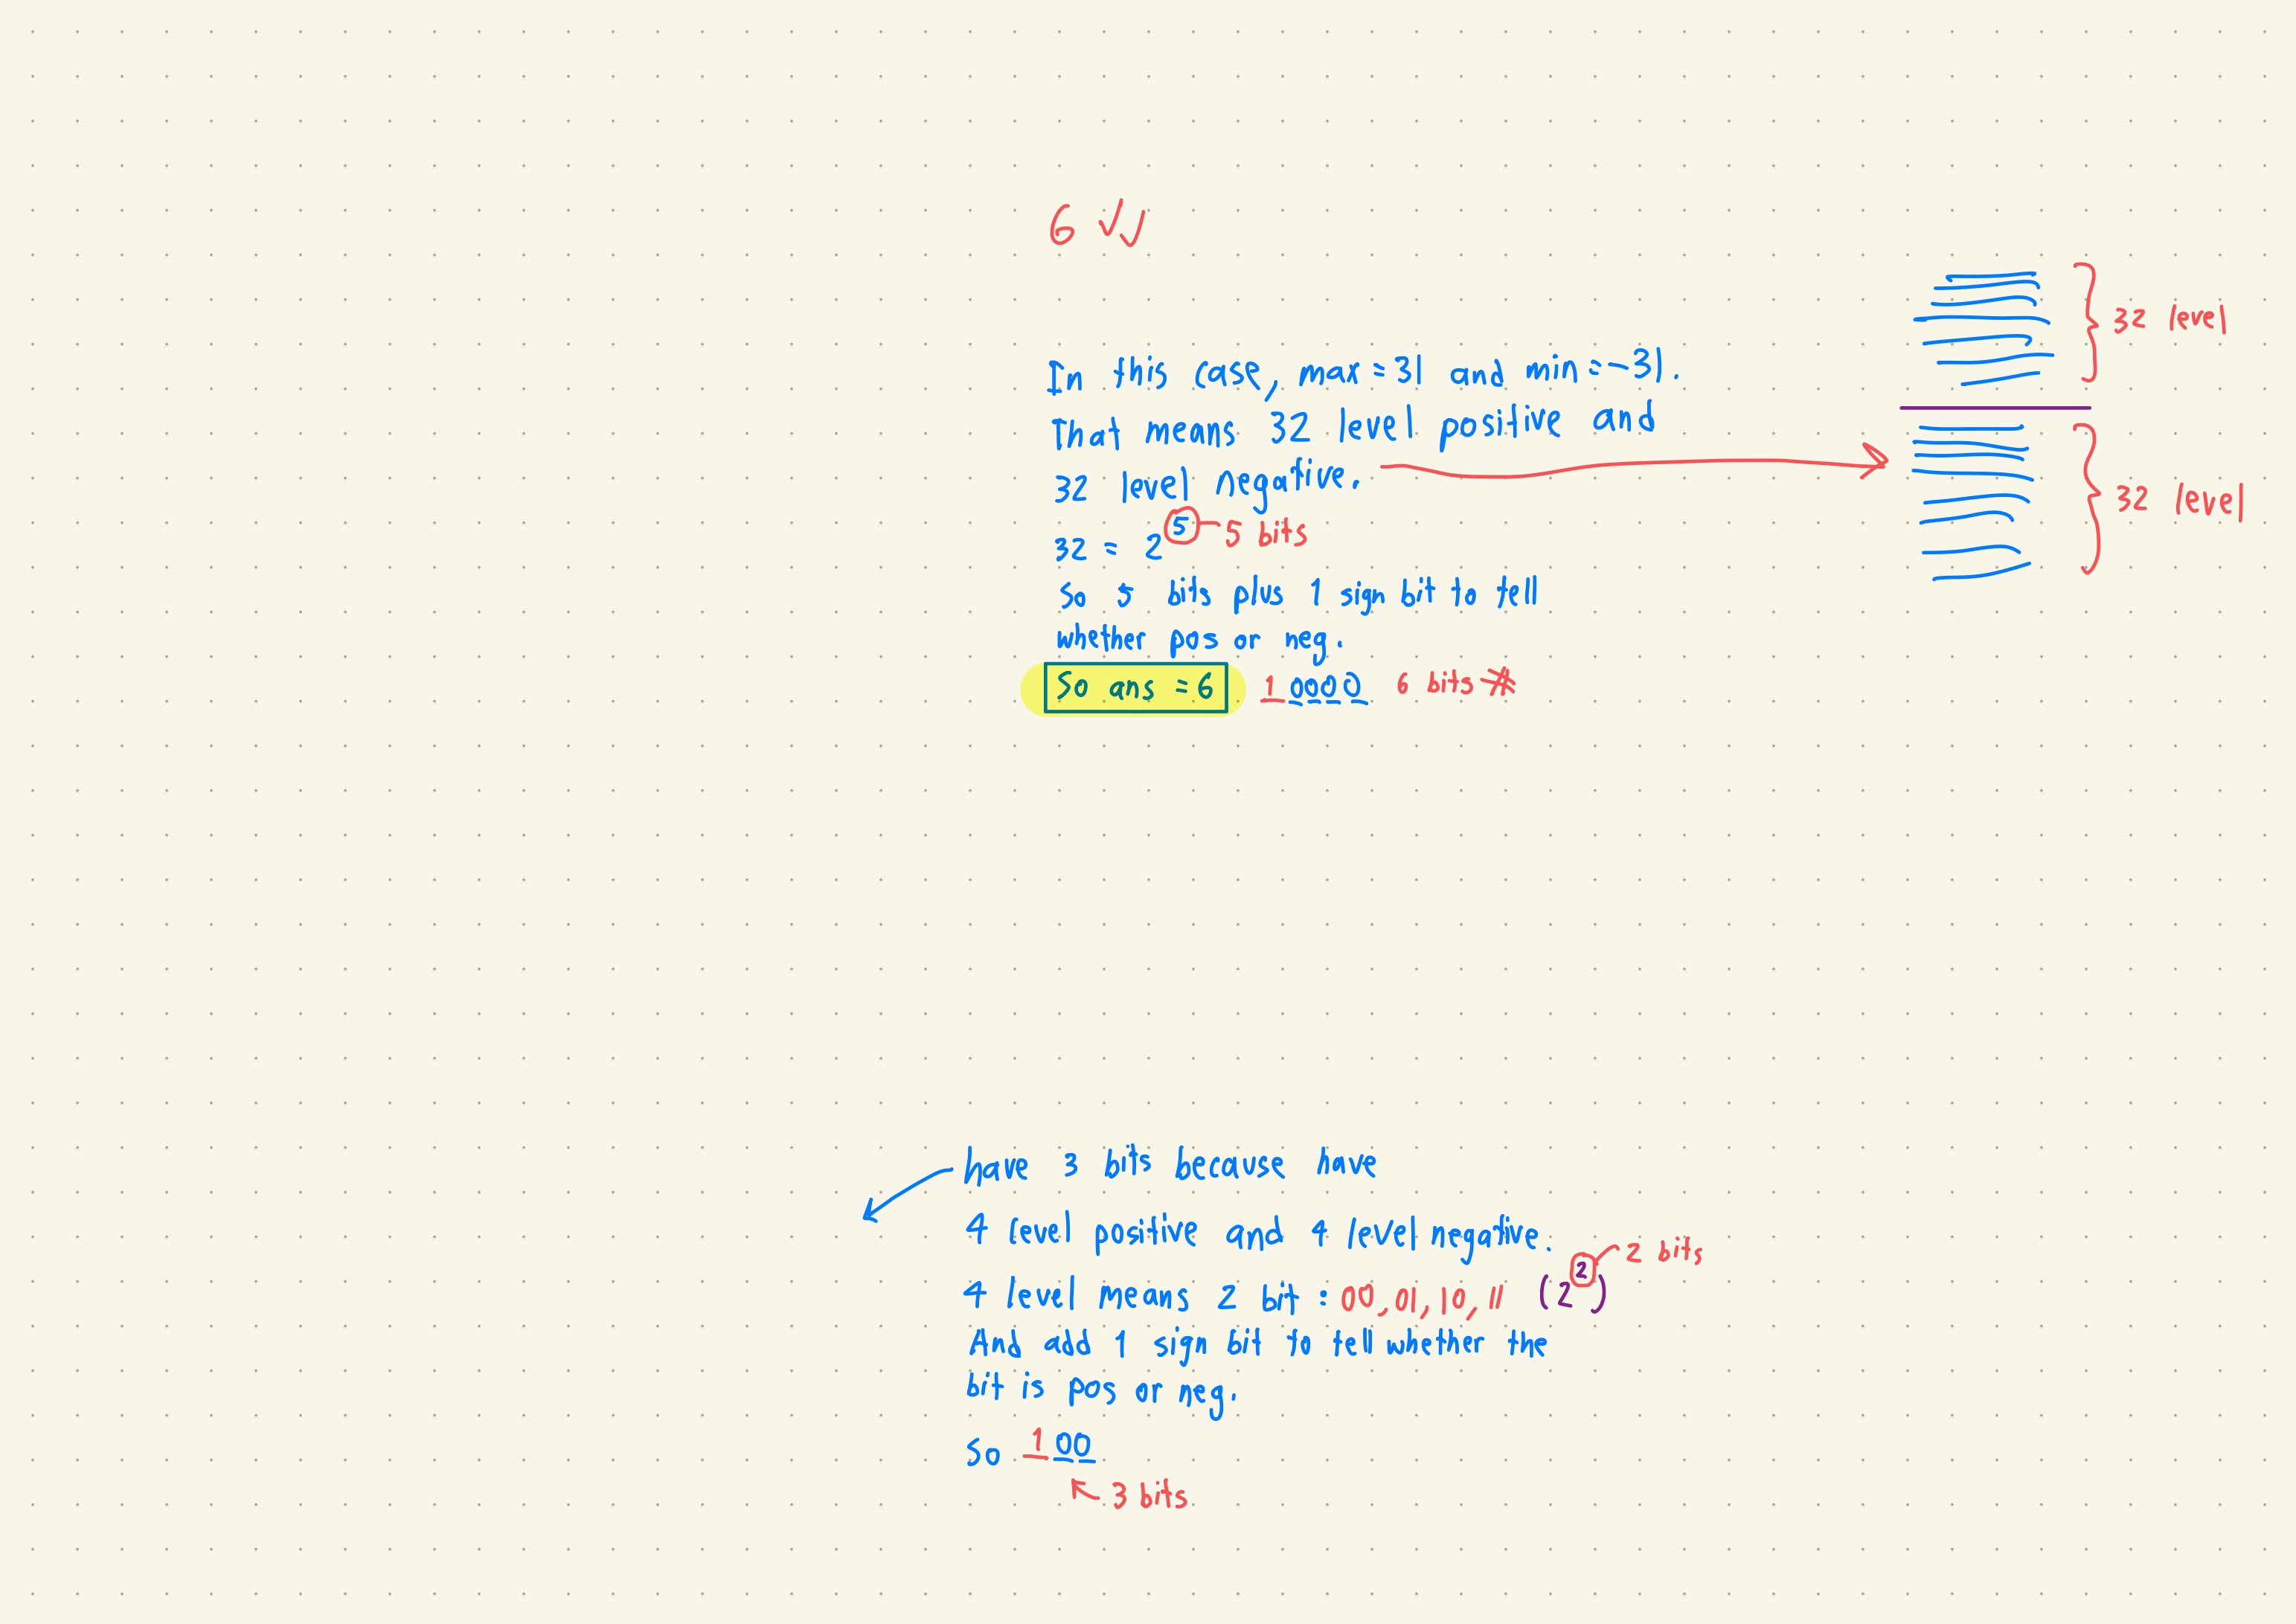 6 ✓✓
In this case, max = 31 and min = -31.
That means 32 level positive and
32 level negative.
32 level
32 level
32 = 2^5 5 bits
So 5 bits plus 1 sign bit to tell
whether pos or neg.
So ans = 6 1 0000 6 bits #
have 3 bits because have
4 level positive and 4 level negative.
4 level means 2 bit : 00, 01, 10, 11 (2^2) 2 bits
And add 1 sign bit to tell whether the
bit is pos or neg.
So 1 00
3 bits